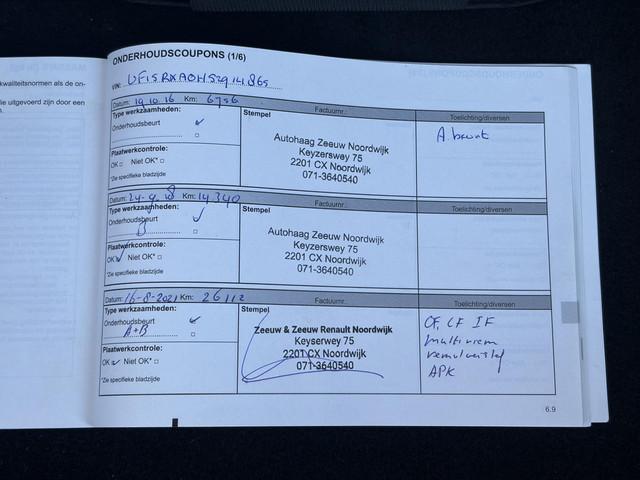 kwaliteitsnormen als de on-
lie uitgevoerd zijn door een
n.
ONDERHOUDSCOUPONS (1/6)
VIN:
Datum: 19.10.16 Km: 6756 Factuurnr.: Toelichting/diversen
Type werkzaamheden:
Onderhoudsbeurt
Plaatwerkcontrole:
OK □ Niet OK* □
*Zie specifieke bladzijde
Stempel
Autohaag Zeeuw Noordwijk
Keyzersweg 75
2201 CX Noordwijk
071-3640540
A beurt
Datum: 24-9-18 Km: 14.340 Factuurnr.: Toelichting/diversen
Type werkzaamheden:
Onderhoudsbeurt
B
Plaatwerkcontrole:
OK Niet OK* □
*Zie specifieke bladzijde
Stempel
Autohaag Zeeuw Noordwijk
Keyzersweg 75
2201 CX Noordwijk
071-3640540
Datum: 16-8-2021 Km: 26112 Factuurnr.: Toelichting/diversen
Type werkzaamheden:
Onderhoudsbeurt
A+B
Plaatwerkcontrole:
OK Niet OK* □
*Zie specifieke bladzijde
Stempel
Zeeuw & Zeeuw Renault Noordwijk
Keyserweg 75
2201 CX Noordwijk
071-3640540
OF, LF IF
multiriem
remvloeistof
APK
6.9